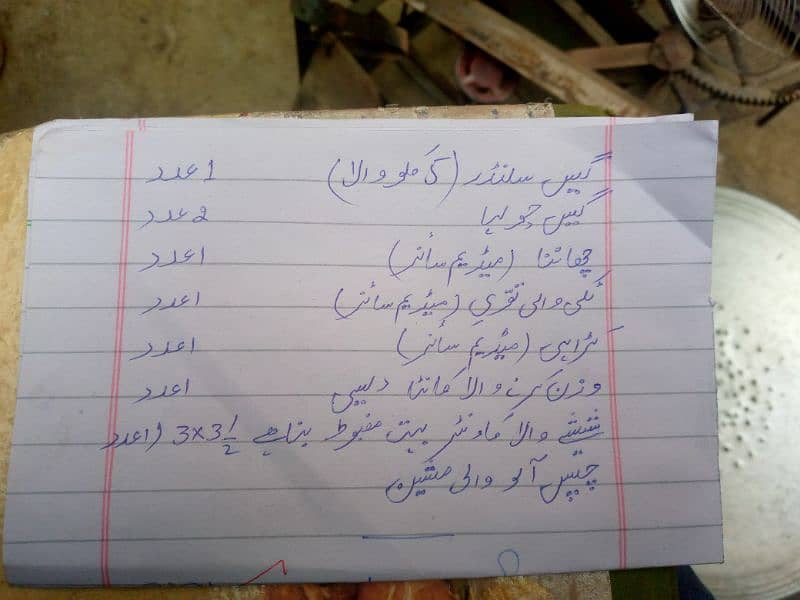 گیس سلنڈر (5 کلو والا) 1 عدد
گیس چولہا 2 عدد
چھاننا (میڈیم سائز) 1 عدد
والی (میڈیم سائز) 1 عدد
کڑاہی (میڈیم سائز) 1 عدد
وزن کرنے والا کانٹا دیسی 1 عدد
شیشے والا کاونٹر بہت مضبوط بنا ہے 3x3½ (1 عدد
چپس آلو والی مشین